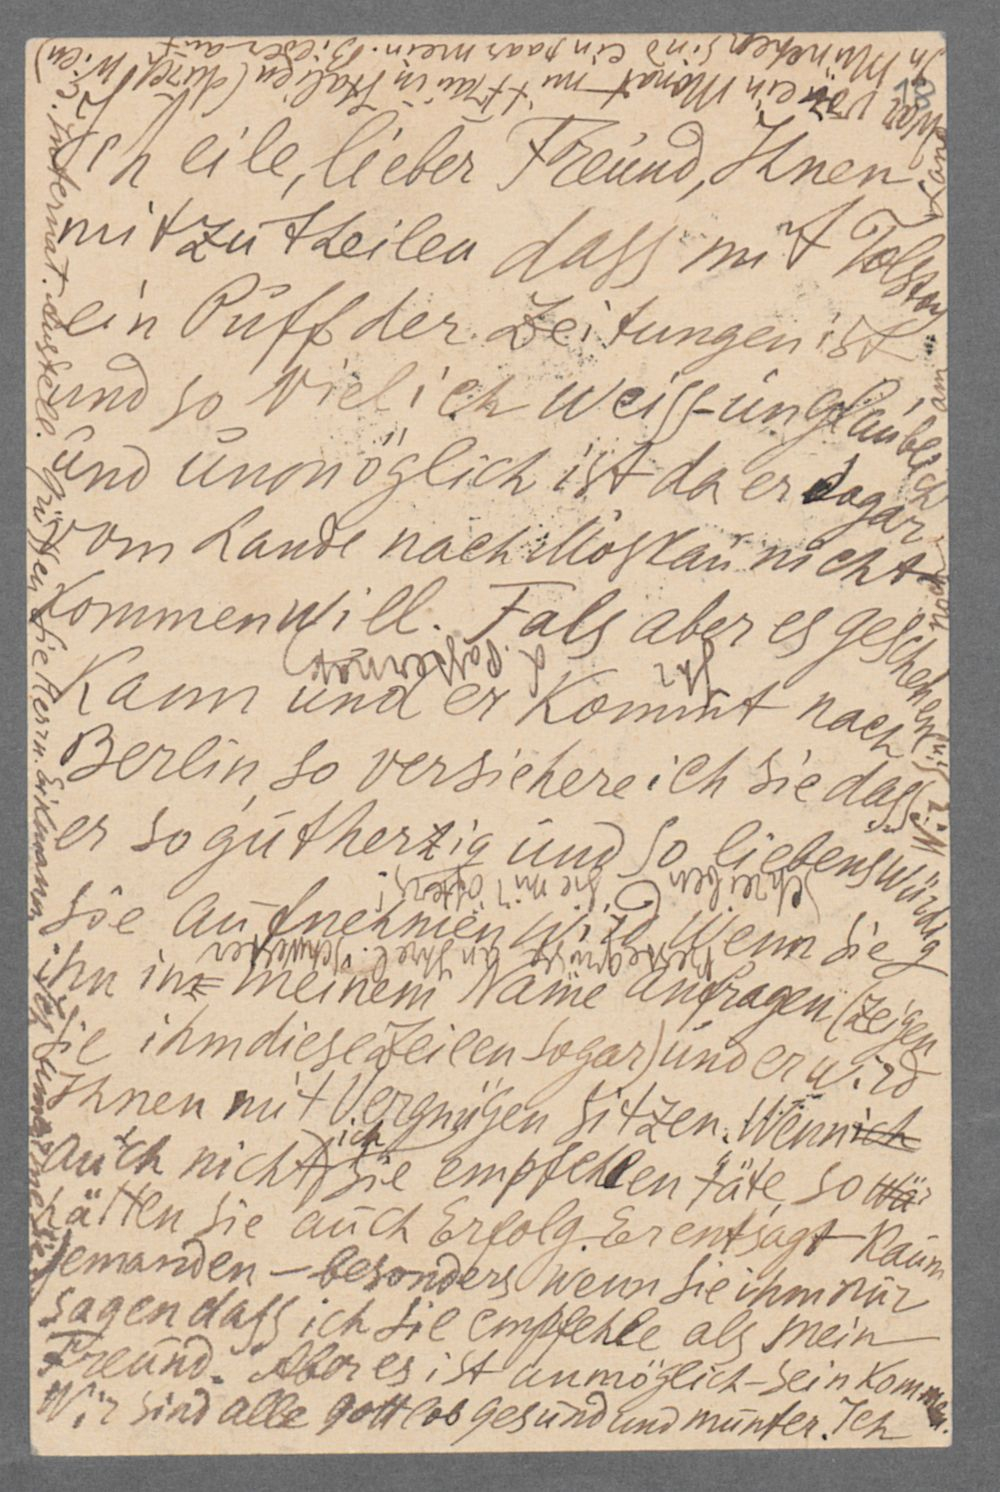 Ich eile, lieber Freund, Ihnen
mitzutheilen dass mit Tolstoy
ein Puff der Zeitungen ist
und so viel ich weiss - unglaublich
und unmöglich ist da er sogar
vom Lande nach Moskau nicht
kommen will. Fals aber es geschehen
kann und er kommt nach
Berlin, so versichere ich Sie dass
er so gutherzig und so liebenswürdig
Sie aufnehmen wird wenn Sie
ihn in meinem Name anfragen (zeigen
Sie ihm diese Zeilen sogar) und er wird
Ihnen mit Vergnügen sitzen. Wenn ich
auch nicht ich Sie empfehlen täte, so wä
hätten Sie auch Erfolg. Er entsagt kaum
jemanden - besonders wenn Sie ihm nur
sagen dass ich Sie empfehle als mein
Freund. Aber es ist unmöglich - sein Kommen.
Wir sind alle gottlob gesund und munter. Ich
war vor ein Monat mit Frau in Italien (durch Wien)
In München sind ein paar mein. Bilder auf
d. Internat. Ausstell. Grüssen Sie Herrn
Schreiben Sie mir öfters!
Bestegrüsse an Ihre l. Schwester
Ihr
L. Pasternak